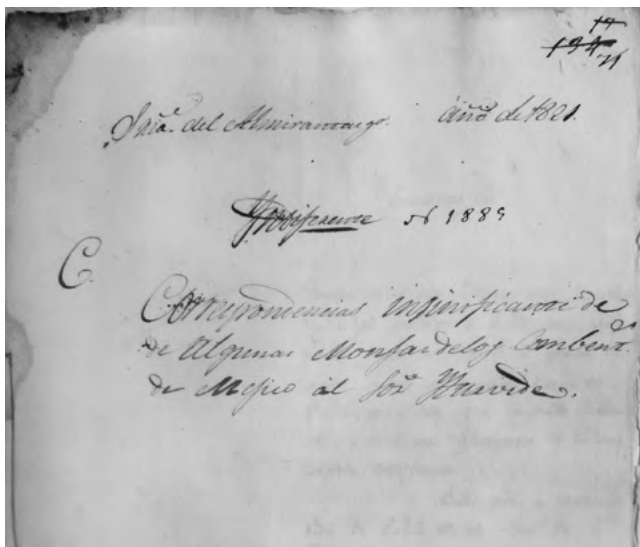 17
Sria. del Almirantazgo. Año de 1821.
Nº 1889
C.
Correspondencias insinificante de
de Algunas Monjas de los Conbent.os
de Mejico al Sor. Yturvide.